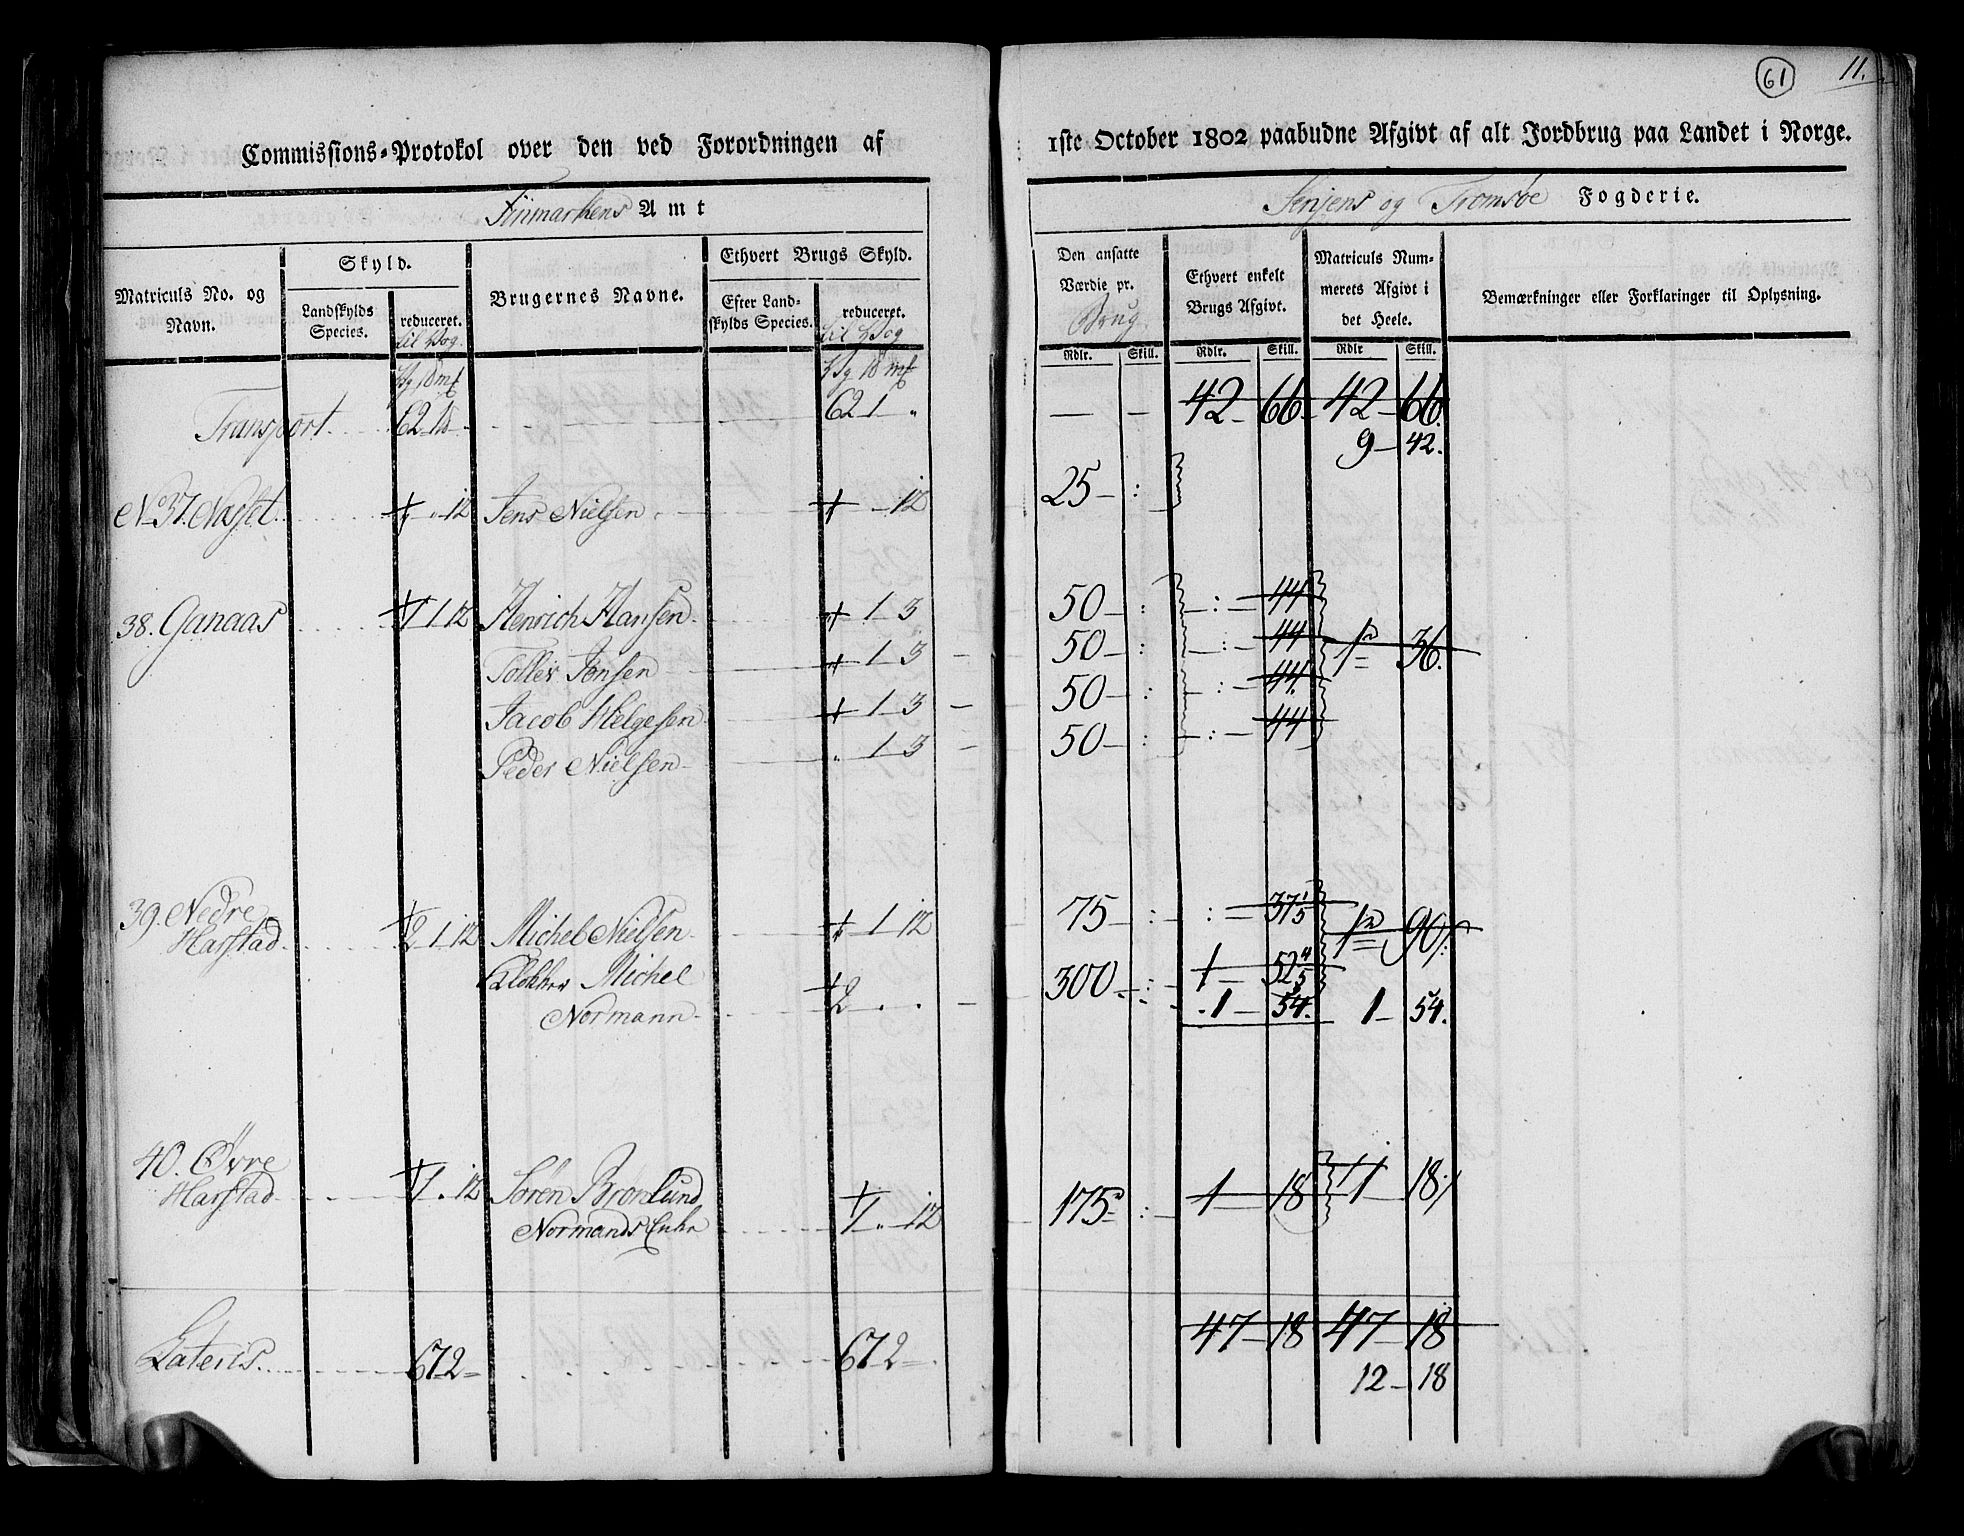 61
11.
Commissions-Protokol over den ved Forordningen af
1ste October 1802 paabudne Afgivt af alt Jordbrug paa Landet i Norge.
Finmarkens Amt
Senjens og Tromsøe Fogderie.
Matriculs No. og Navn.
Skyld.
Landskylds Species.
reduceret. til Vog
Brugernes Navne.
Ethvert Brugs Skyld.
Efter Landskylds Species.
reduceret. til Vog
Den ansatte Værdie pr. Brug
Ethvert enkelt Brugs Afgivt.
Matriculs Nummerets Afgivt i det Heele.
Bemærkninger eller Forklaringer til Oplysning.
Rdlr. Skill. Rdlr. Skill. Rdlr Skill.
Transport 62 1 62 1 " 42 66 42 66.
9 42.
No 37. 12 Jens Nielsen 12 25 :
38. Ganaas 1 1 12 Henrich Hansen 1 3 50 : : 44
Toller Jensen 1 3 50 : : 44 1 36.
Jacob Helgesen 1 3 50 : : 44
Peder Nielsen 1 3 50 : : 44
39. Nedre Harstad 2 1 12 Michel Nielsen 1 12 75 : : 37 1/5 1 90
Klokker Michel Normann 2 300 : 1 52 4/5
1 54. 1 54.
40. Øvre Harstad 1 12 Søren Brønlund
Normands Enke 1 12 175 : 1 18 1 18
Lateris 67 2 67 2 47 18 47 18
12 18